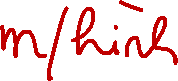 m/hình